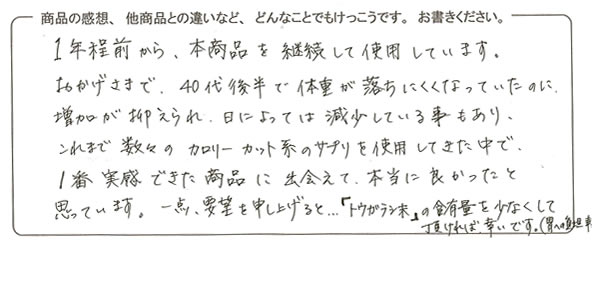 商品の感想、他商品との違いなど、どんなことでもけっこうです。お書きください。
1年程前から、本商品を継続して使用しています。
おかげさまで、40代後半で体重が落ちにくくなっていたのに、
増加が抑えられ、日によっては減少している事もあり、
これまで数々のカロリーカット系のサプリを使用してきた中で、
1番実感できた商品に出会えて、本当に良かったと
思っています。一点、要望を申し上げると…「トウガラシ末」の含有量を少なくして
頂ければ幸いです。(胃への負担